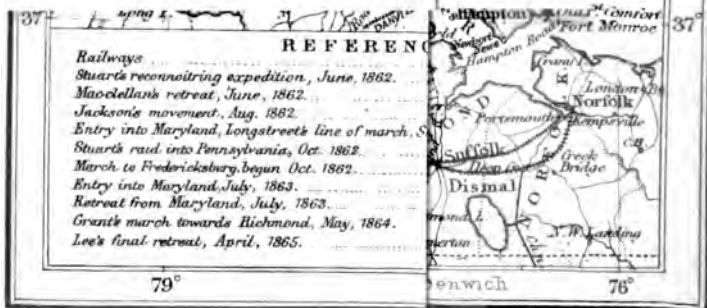 37°
REFERENC
Railways
Stuart's reconnoitring expedition, June, 1862.
Macclellan's retreat, June, 1862.
Jackson's movement, Aug. 1862
Entry into Maryland, Longstreet's line of march, S
Stuart's raid into Pennsylvania, Oct. 1862.
March to Fredericksburg, begun Oct. 1862.
Entry into Maryland, July, 1863.
Retreat from Maryland, July, 1863.
Grant's march towards Richmond, May, 1864.
Lee's final retreat, April, 1865.
79°
Hampton
Pt. Comfort
Fort Monroe
37°
Newport News
Hampton Road
Crany I.
London B
Norfolk
Portsmouth
Kempsville
C.H.
Suffolk
Creek Bridge
Dismal
mond L.
N.W. Landing
merton
enwich
76°